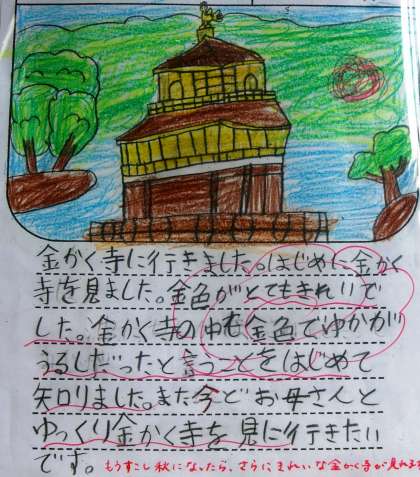 金かく寺に行きました。はじめに金かく
寺を見ました。金色がとてもきれいで
した。金かく寺の中も金色でゆかがり
うるしだったと言うことをはじめて
知りました。また今どお母さんと
ゆっくり金かく寺を見に行きたい
です。
もうすこし秋になったら、さらにきれいな金かく寺が見れる